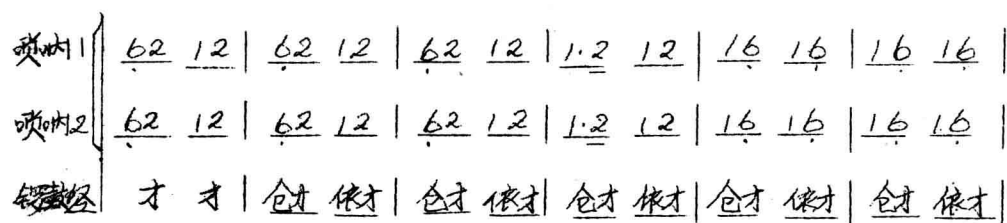 唢呐1 62 12 | 62 12 | 62 12 | 1·2 12 | 16 16 | 16 16 |
唢呐2 62 12 | 62 12 | 62 12 | 1·2 12 | 16 16 | 16 16 |
锣鼓经 才 才 | 仓才 依才 | 仓才 依才 | 仓才 依才 | 仓才 依才 | 仓才 依才 |